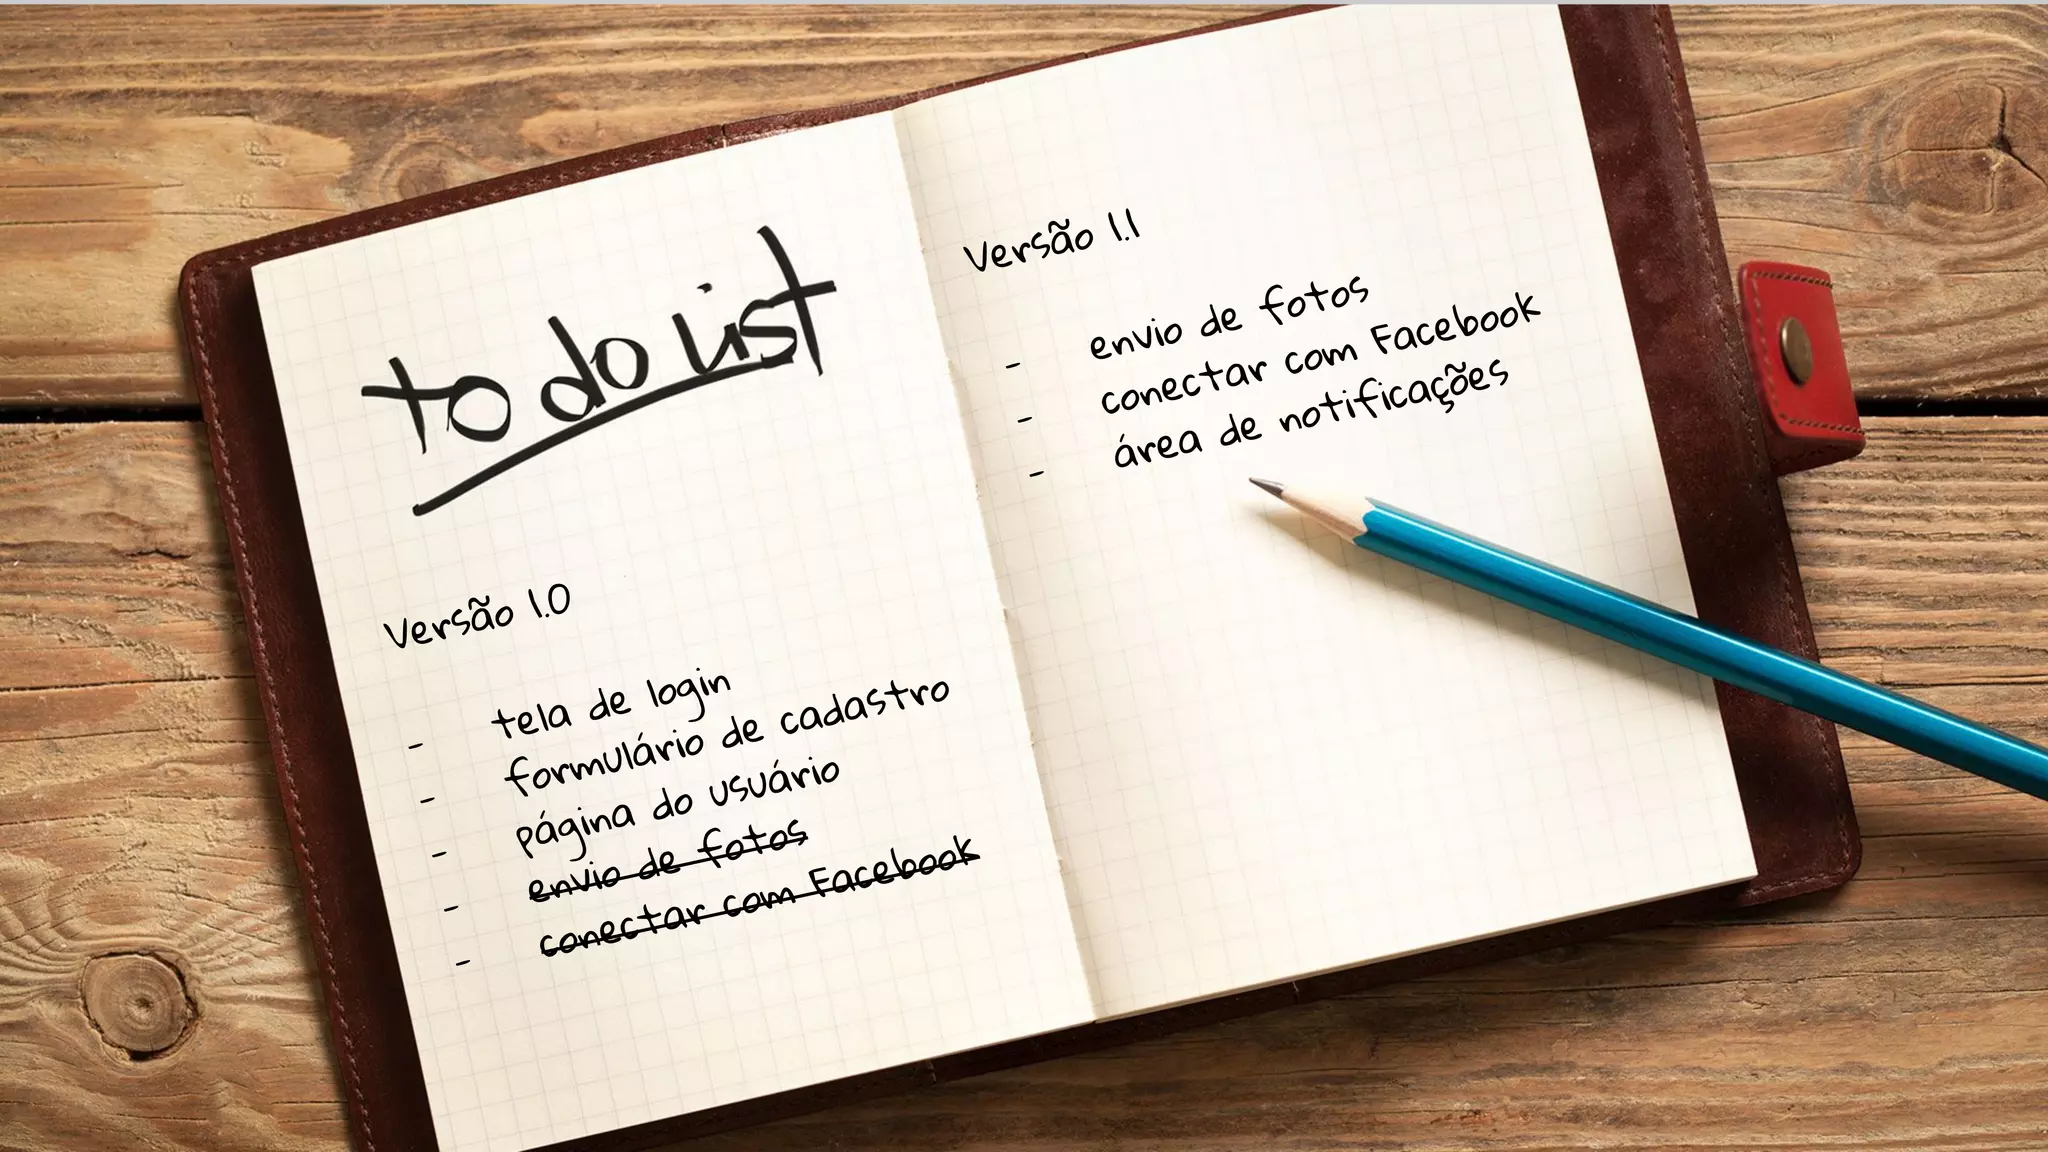 to do list
Versão 1.0
- tela de login
- formulário de cadastro
- página do usuário
- envio de fotos
- conectar com Facebook
Versão 1.1
- envio de fotos
- conectar com Facebook
- área de notificações